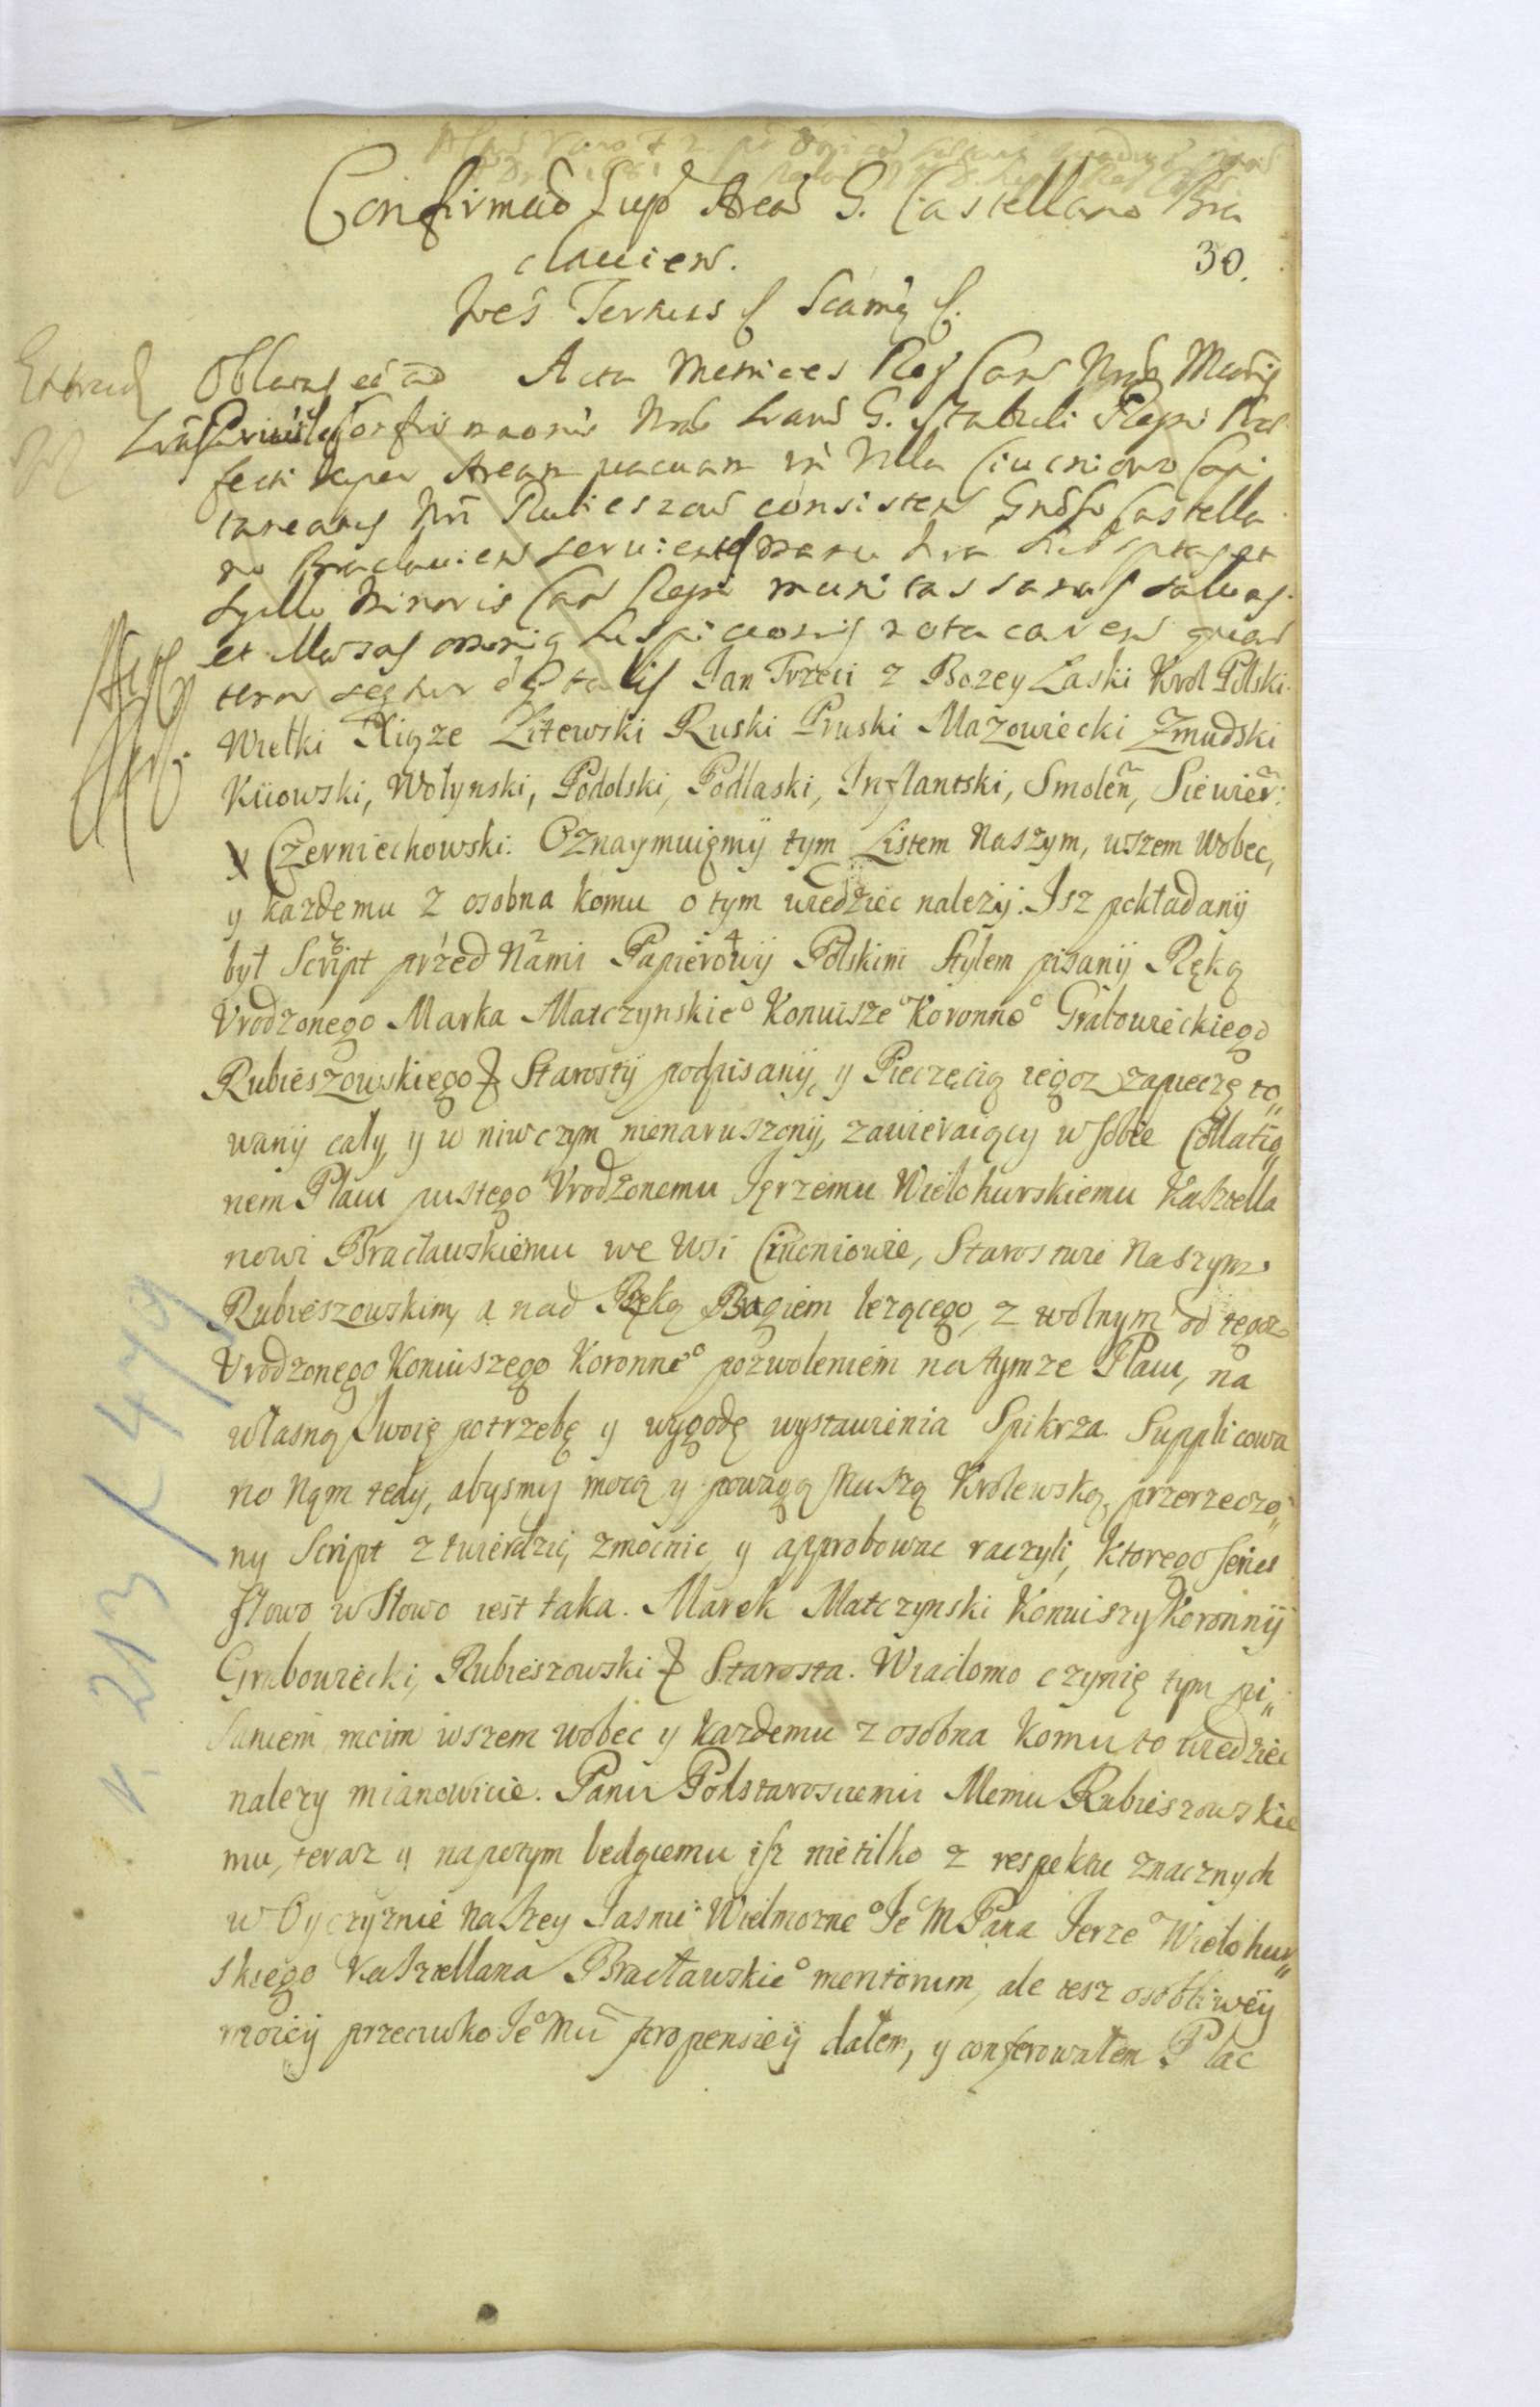 Confirmāo Sup Area G. Castellano Bra
clauien.
30.
Joēs Tertius
Oblatus ē ad Acta Metrices Regni
Confirmaonis G. Stabuli Regni Prae
fecti super Aream vacuam in Villa Ciucniowo Capi
taneatus Rubieszow consisten Castella
no Braclauien seruientes manu
Sygillo Minoris Can Regni munitas sanas saluas
et illaesas omniq suspicionis nota caren quar
tenor seqtur ē talis Jan Trzeci z Bozey Łaski Krol Polski
Wielki Xiąze Litewski Ruski Pruski Mazowiecki Zmudski
Kiiowski, Wołynski, Podolski, Podlaski, Inflantski, Smoleñ, Siewier:
y Czerniechowski. Oznaymuięmÿ tym Listem Naszym, wszem wobec,
y kazdemu z osobna komu o tym wiedziec nalezÿ. Isz pokładanÿ
był Script przed Nami Papierowÿ Polskim Stylem pisanÿ Ręką
Vrodzonego Marka Matczynskie° Koniusze° Koronne° Grabowieckiego
Rubieszowskiego & Starostÿ podpisanÿ, y Pieczęcią iegoz zapieczęto„
wanÿ cały, y w niwczym nienaruszonÿ, zawieraiący w sobie Collatio„
nem Placu pustego Vrodzonemu Jerzemu Wielohurskiemu Kasztella
nowi Bracławskiemu we Wsi Ciucniowie, Starostwie Naszym
Rubieszowskim, a nad Rzeką Bugiem lezącego, z wolnym od tegoz
Vrodzonego Koniuszego Koronne° pozwoleniem na tymze Placu, na
własną swoię potrzebę y wygodę wystawienia Spikrza. Supplicowa
no Nąm tedÿ, abysmy mocą y powagą Naszą Krolewską, przerzeczo„
ny Script ztwierdzic, zmocnic y approbowac raczyli, Ktorego series
słowo w słowo iest taka. Marek Matczynski Koniuszy Koronnÿ
Grabowiecki, Rubieszowski & Starosta. Wiadomo czynię tym pi„
saniem moim wszem wobec y kazdemu z osobna komu to wiedziec
nalezy mianowicie. Panu Podstaroscemu Memu Rubieszowskie
mu, teraz y napotym będącemu isz nie tilko z respektu znacznych
w Oyczyznie Naszey Jasnie Wielmozne° Je° M Pana Jerze° Wielohur„
skiego Kasztellana Bracławskie° meritorum, ale tesz osobliwëy
moiëy przeciwko Je° Mci propensiëy dałem, y conferowałem Plac
N. 213 / K 479